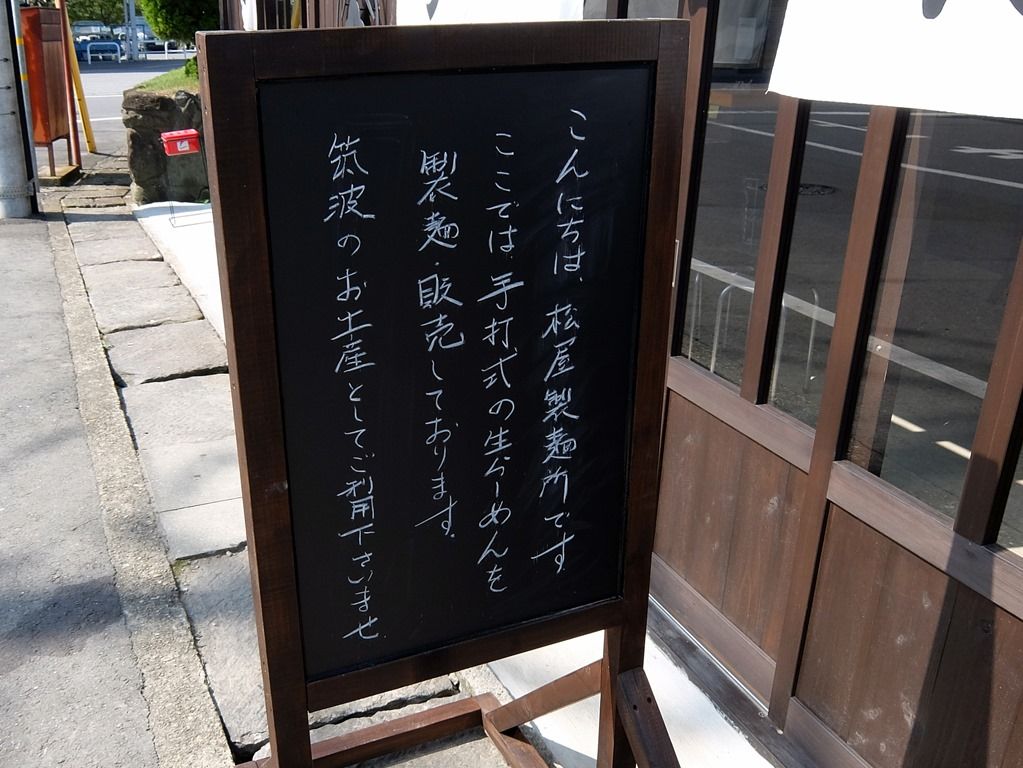 こんにちは、松屋製麺所です
ここでは、手打式の生らーめんを
製麺・販売しております。
筑波のお土産としてご利用下さいませ